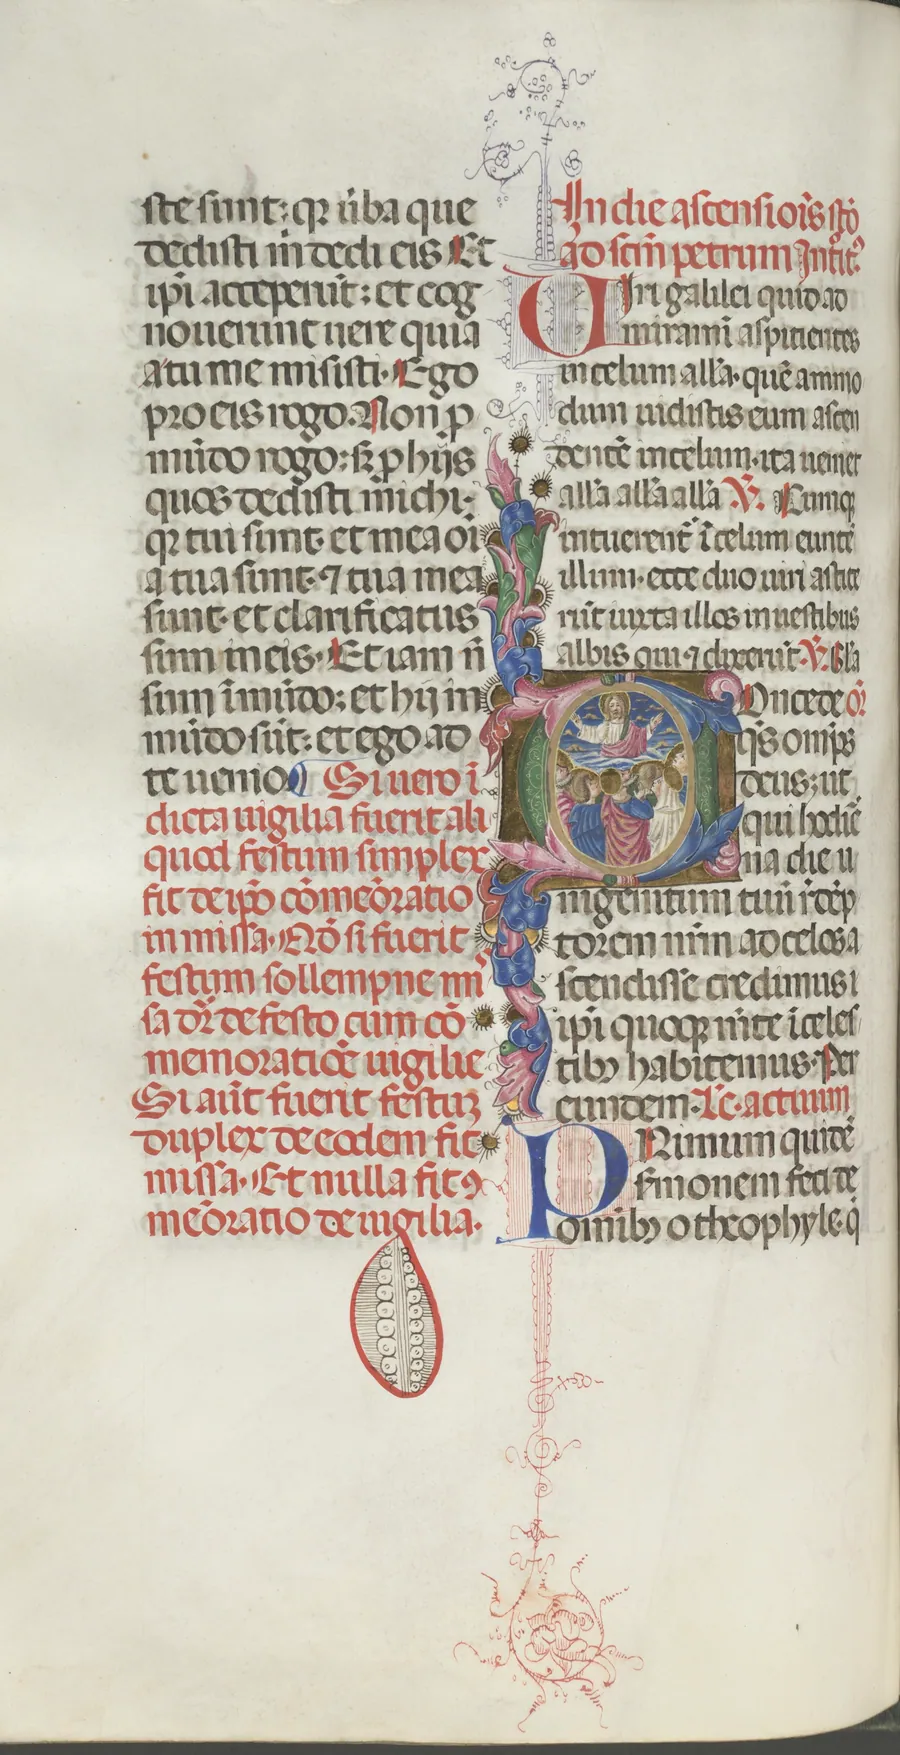 ste sunt: qr uba que
dedisti m dedi eis Et
ipi acceperut: et cog
nouerunt uere quia
a tu me misisti. Ego
pro eis rogo. Non p
mudo rogo: sz p hijs
quos dedisti michi.
qr tui sunt. et mea oi
a tua sunt. ⁊ tua mea
sunt. et clarificatus
sum in eis. Et iam n̄
sum ī mūdo: et hij in
mūdo sūt: et ego ad
te uenio. Si uero ī
dicta uigilia fuerit ali
quod festum simplex
fit de ip̄o cōmeōratio
in missa. Nō si fuerit
festum sollempne mis
sa dr̄ de festo cum cō
memoratiōe uigilie
Si aūt fuerit festuz
duplex de eodem fit
missa. Et nulla fit ꝯ
meōratio de uigilia.
In die ascensiōis stō
ad scm̄ petrum Intit.
Uiri galilei quid ad
miramī aspicientes
in celum all'a. quē ammo
dum uidistis eum ascen
dentē in celum. ita ueniet
all'a all'a all'a V. Cumq
intuerent̄ ī celum euntē
illum. ecce duo uiri astite
rūt iuxta illos in uestibus
albis qui ⁊ dixerūt. V. Gl'a
Concede or̄
q̄s omp̄s
deus: ut
qui hodiē
na die u
nigenitum tuū r̄dēp
torem nr̄m ad celos a
scendisse credimus i
ipi quoqꝫ mēte ī celes
tibꝫ habitemus. Per
eundem. Lc. actuum
Primum quidē
s̄monem feci de
omibꝫ o theophyle. q̄